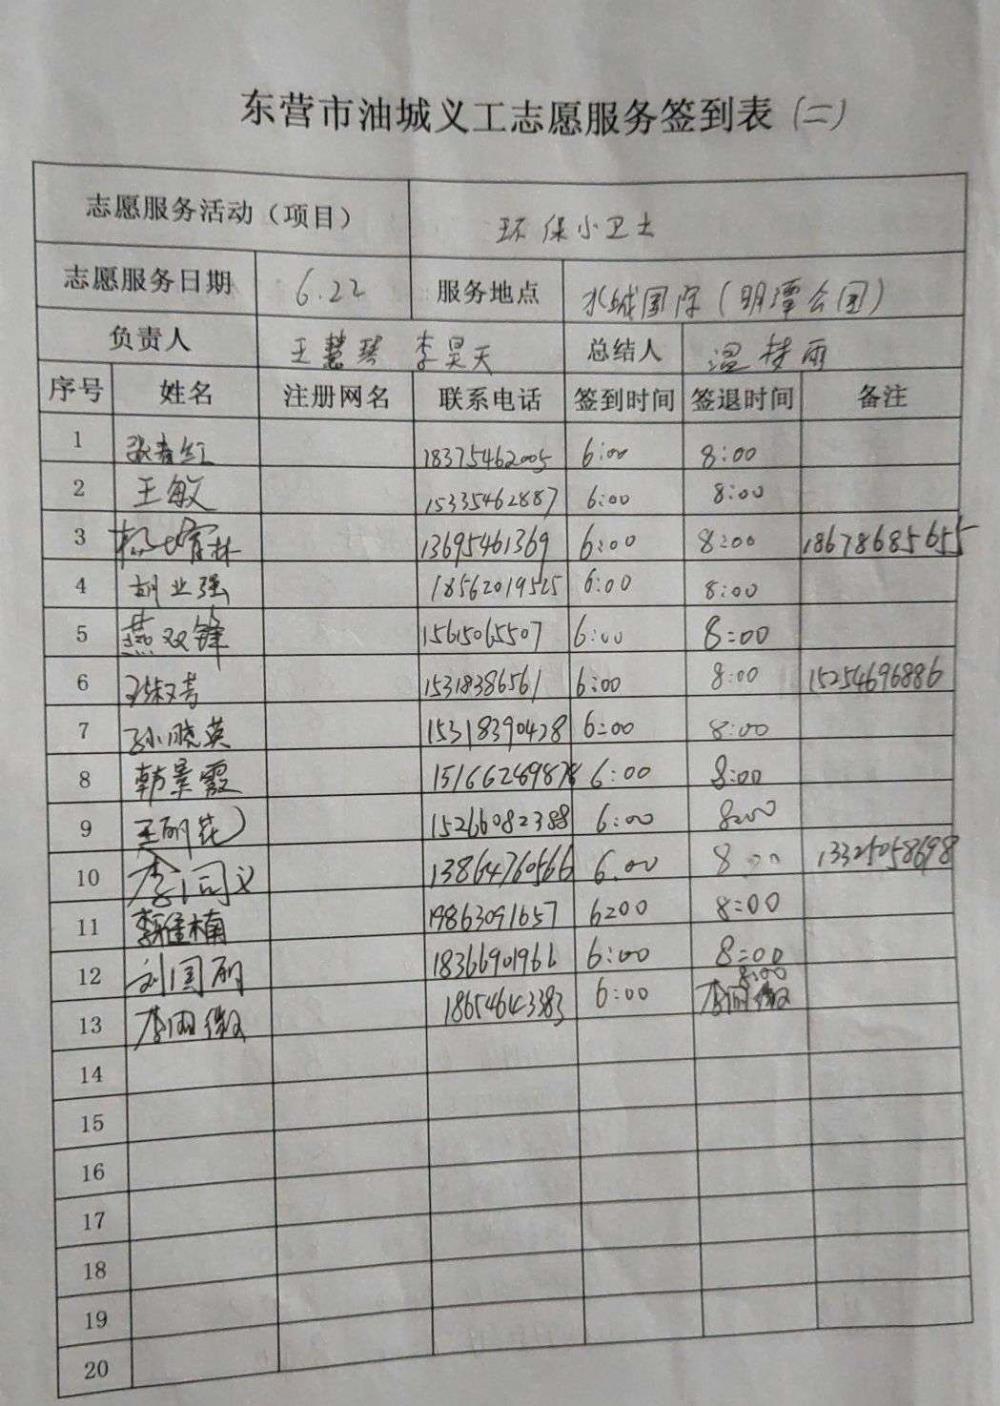 东营市油城义工志愿服务签到表（二）
志愿服务活动（项目） 环保小卫士
志愿服务日期 6.22 服务地点 水城国际（明潭公园）
负责人 王慧琴 李昊天 总结人 温梦雨
序号 姓名 注册网名 联系电话 签到时间 签退时间 备注
1 张春红 18375462005 6:00 8:00
2 王敏 15335462887 6:00 8:00
3 13695461369 6:00 8:00 18678685655
4 胡业强 18562019525 6:00 8:00
5 燕双锋 15615065507 6:00 8:00
6 15318386561 6:00 8:00 15254696886
7 孙晓英 15318390428 6:00 8:00
8 韩景霞 15166289878 6:00 8:00
9 王丽花 15266082388 6:00 8:00
10 李同义 13864760566 6.00 8:00 13325058698
11 19863091657 6:00 8:00
12 刘国丽 18366901966 6:00 8:00
8:00
13 李雨微 18654643383 6:00 李雨微
14
15
16
17
18
19
20